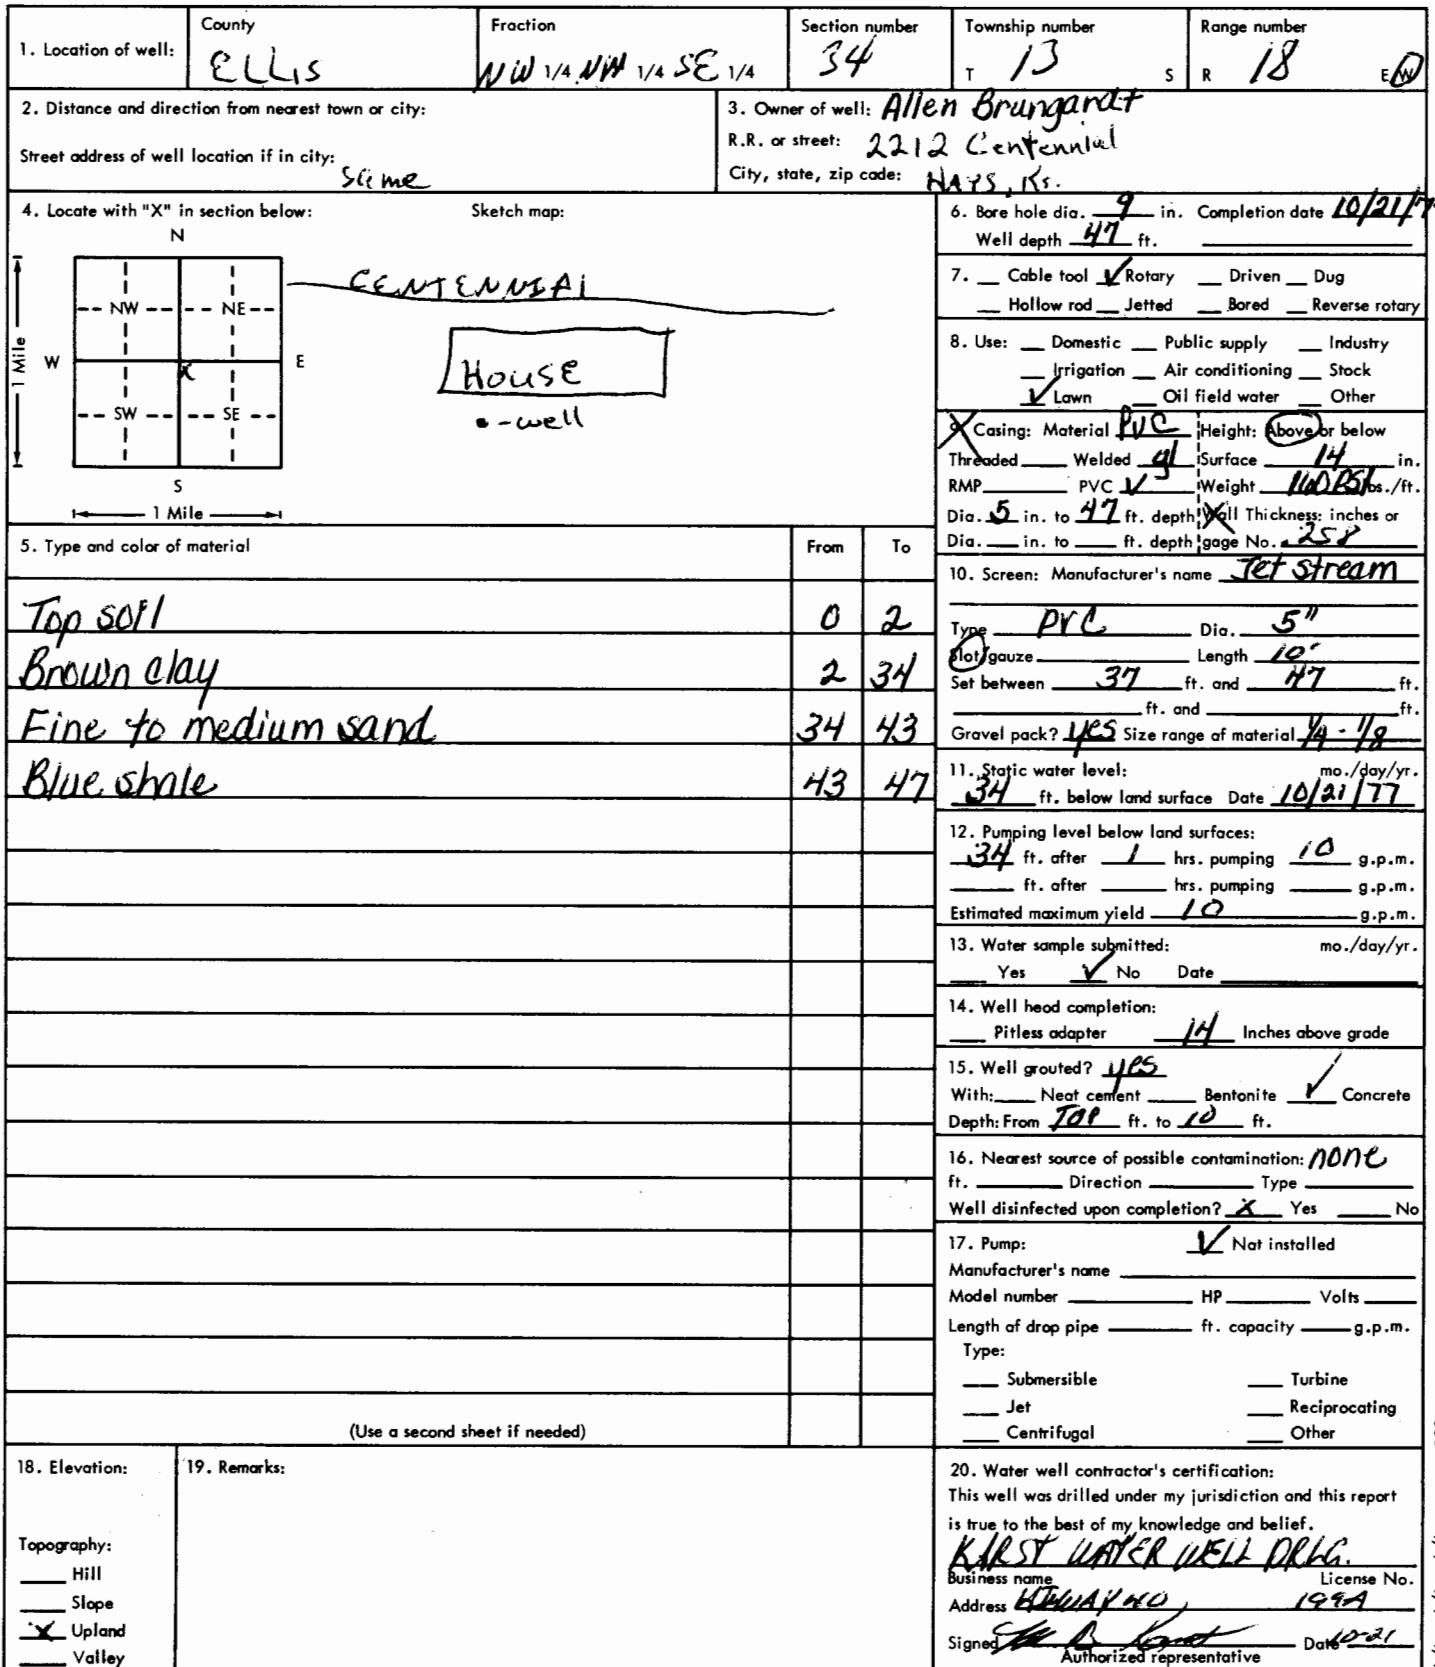 1. Location of well:
County
ELLIS
Fraction
NW 1/4 NW 1/4 SE 1/4
Section number
34
Township number
T 13 S
Range number
R 18 E/W
2. Distance and direction from nearest town or city:
Street address of well location if in city:
Same
3. Owner of well: Allen Brungardt
R.R. or street: 2212 Centennial
City, state, zip code: HAYS, Ks.
4. Locate with "X" in section below:
Sketch map:
N
NW NE
W E
1 Mile
X
SW SE
S
1 Mile
CENTENNIAL
HOUSE
•-well
5. Type and color of material From To
Top soil 0 2
Brown clay 2 34
Fine to medium sand 34 43
Blue shale 43 47
(Use a second sheet if needed)
6. Bore hole dia. 9 in. Completion date 10/21/7
Well depth 47 ft.
7. Cable tool ✓ Rotary Driven Dug
Hollow rod Jetted Bored Reverse rotary
8. Use: Domestic Public supply Industry
Irrigation Air conditioning Stock
✓ Lawn Oil field water Other
9. Casing: Material PVC Height: Above or below
Threaded Welded gl Surface 14 in.
RMP PVC ✓ Weight 160 PSI lbs./ft.
Dia. 5 in. to 47 ft. depth Wall Thickness: inches or
Dia. in. to ft. depth gage No. .258
10. Screen: Manufacturer's name Jet stream
Type PVC Dia. 5"
Slot/gauze Length 10'
Set between 37 ft. and 47 ft.
ft. and ft.
Gravel pack? yes Size range of material 1/4 - 1/8
11. Static water level: mo./day/yr.
34 ft. below land surface Date 10/21/77
12. Pumping level below land surfaces:
34 ft. after 1 hrs. pumping 10 g.p.m.
ft. after hrs. pumping g.p.m.
Estimated maximum yield 10 g.p.m.
13. Water sample submitted: mo./day/yr.
Yes ✓ No Date
14. Well head completion:
Pitless adapter 14 Inches above grade
15. Well grouted? yes
With: Neat cement Bentonite ✓ Concrete
Depth: From TOP ft. to 10 ft.
16. Nearest source of possible contamination: none
ft. Direction Type
Well disinfected upon completion? X Yes No
17. Pump: ✓ Not installed
Manufacturer's name
Model number HP Volts
Length of drop pipe ft. capacity g.p.m.
Type:
Submersible Turbine
Jet Reciprocating
Centrifugal Other
18. Elevation:
Topography:
Hill
Slope
X Upland
Valley
19. Remarks:
20. Water well contractor's certification:
This well was drilled under my jurisdiction and this report
is true to the best of my knowledge and belief.
KARST WATER WELL DRLG.
Business name License No.
Address HIWAY 40, 199A
Signed Date 10-21
Authorized representative